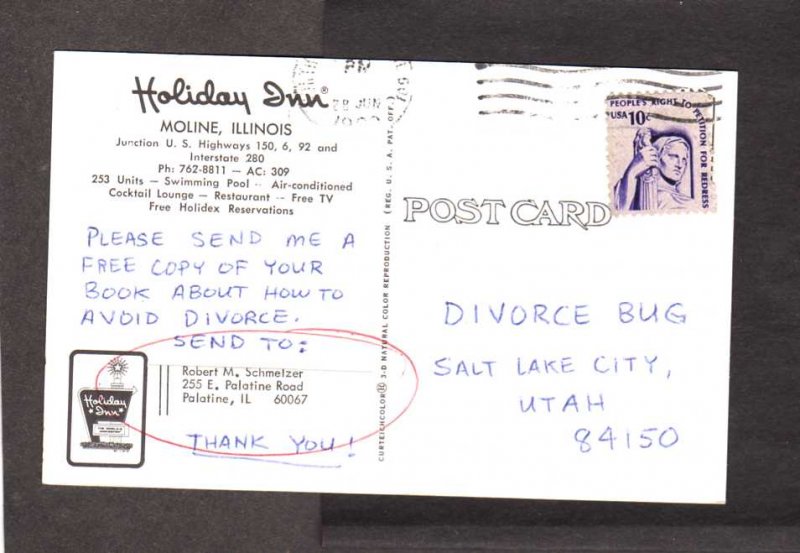 Holiday Inn®
MOLINE, ILLINOIS
Junction U. S. Highways 150, 6, 92 and
Interstate 280
Ph: 762-8811 -- AC: 309
253 Units -- Swimming Pool -- Air-conditioned
Cocktail Lounge -- Restaurant -- Free TV
Free Holidex Reservations
PLEASE SEND ME A
FREE COPY OF YOUR
BOOK ABOUT HOW TO
AVOID DIVORCE.
SEND TO:
Robert M. Schmelzer
255 E. Palatine Road
Palatine, IL 60067
THANK YOU!
Holiday
Inn
CURTEICHCOLOR® 3-D NATURAL COLOR REPRODUCTION (REG. U. S. A. PAT. OFF.)
PM
28 JUN
POST CARD
PEOPLE'S RIGHT TO PETITION FOR REDRESS
USA 10c
DIVORCE BUG
SALT LAKE CITY,
UTAH
84150